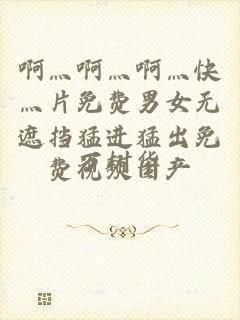 啊灬啊灬啊灬快
灬片免费男女无
遮挡猛进猛出免
费视频国产